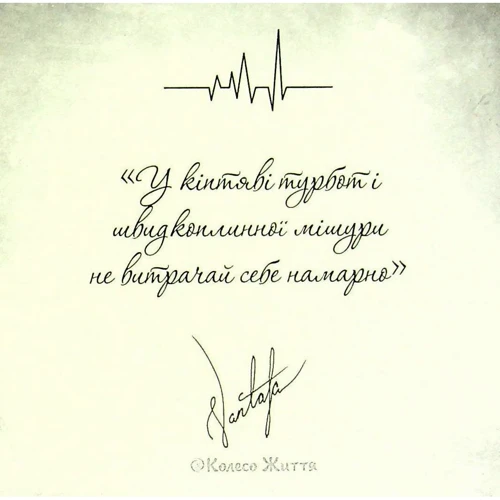 «У кіптяві турбот і
швидкоплинної мішури
не витрачай себе намарно»
@Колесо Життя